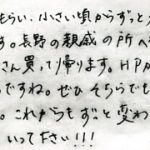 もらい、小さい頃からずっと
す。長野の親戚の所へ
さん買って帰ります。HPが
ですね。ぜひそちらでも
。これからもずっと変わ
いって下さい!!!